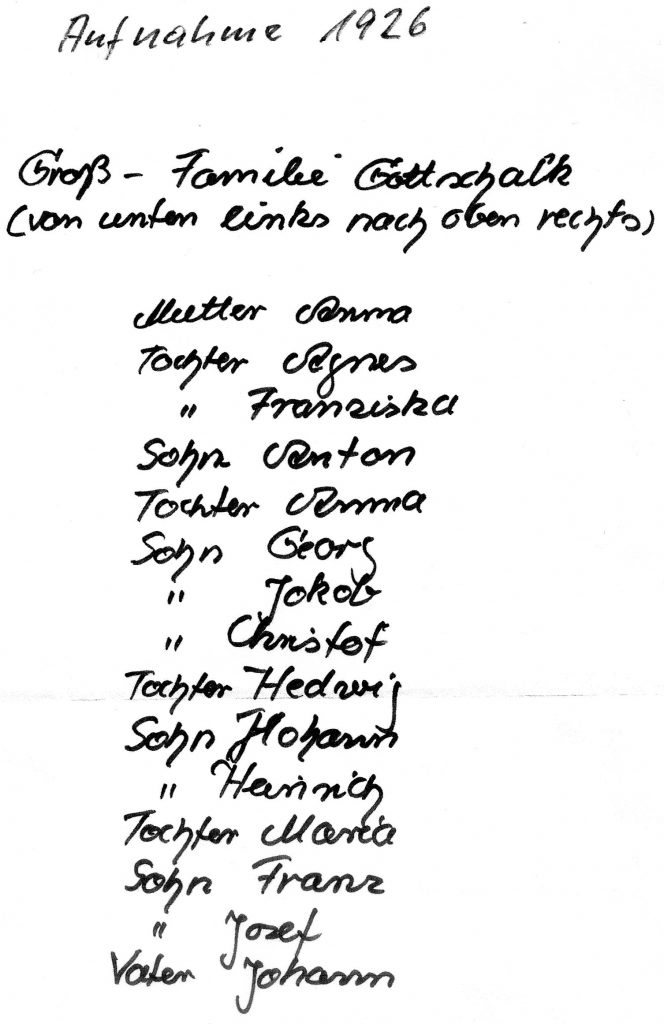 Aufnahme 1926
Groß - Familie Gottschalk
(von unten links nach oben rechts)
Mutter Anna
Tochter Agnes
" Franziska
Sohn Anton
Tochter Anna
Sohn Georg
" Jakob
" Christof
Tochter Hedwig
Sohn Johann
" Heinrich
Tochter Maria
Sohn Franz
" Josef
Vater Johann